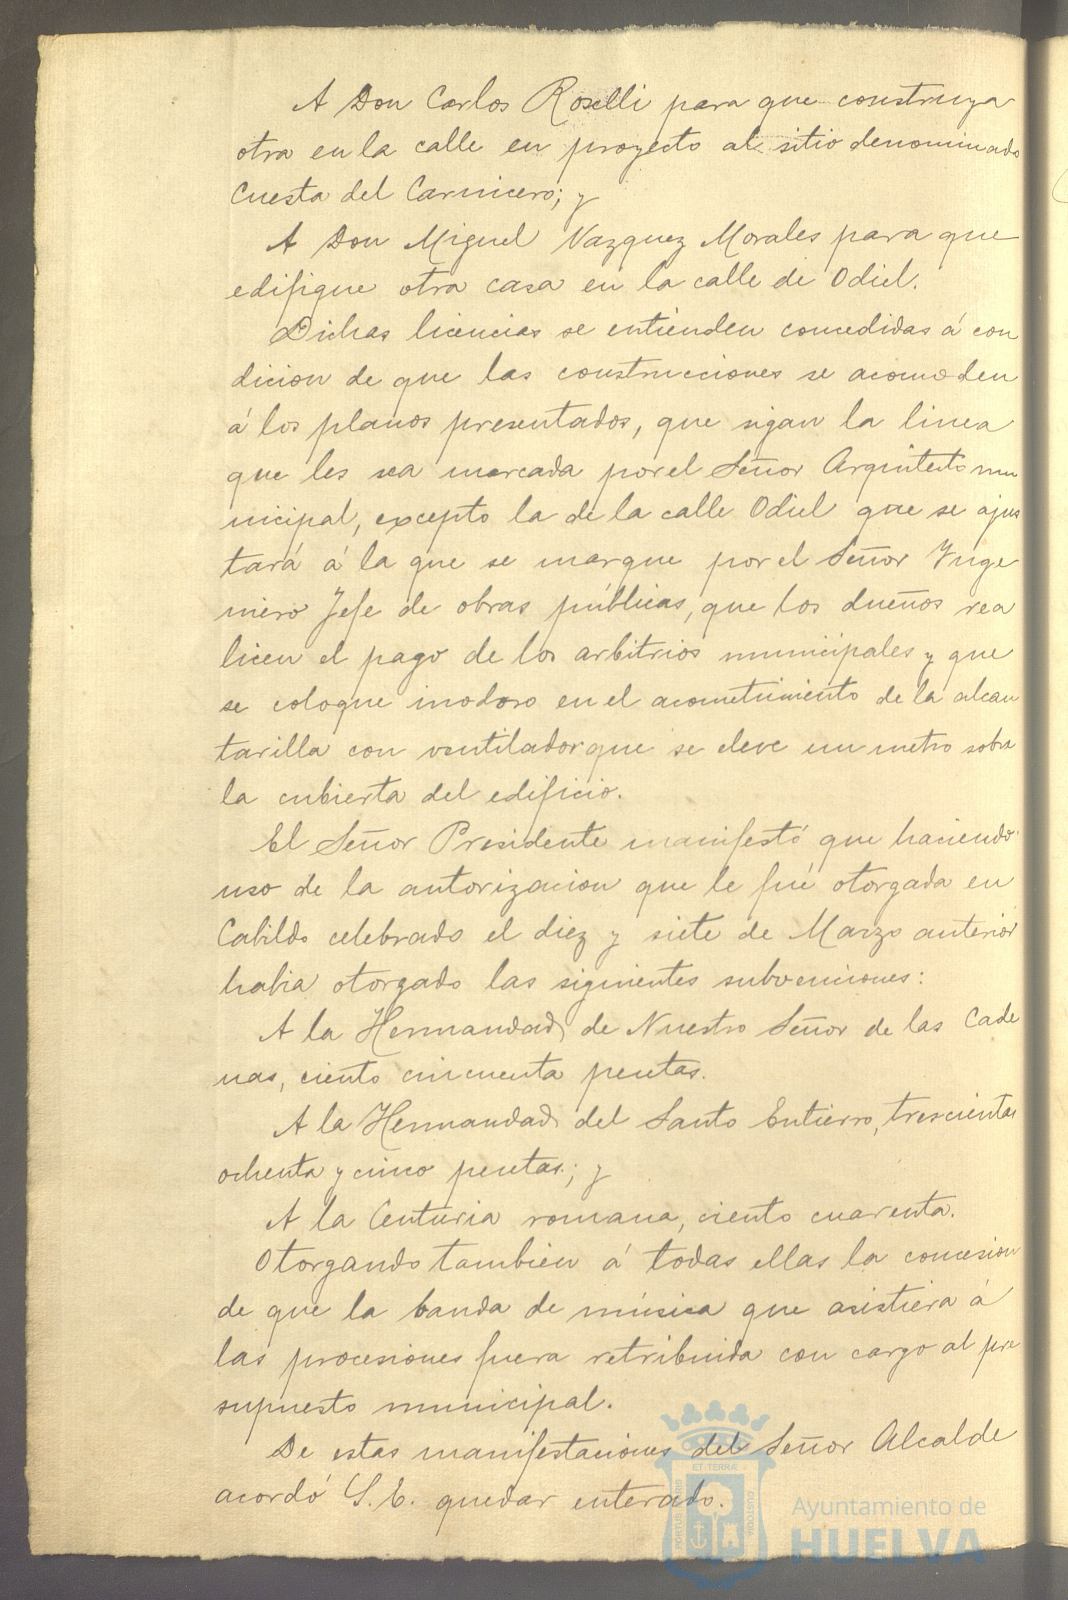 A Don Carlos Roselli para que construya
otra en la calle en proyecto al sitio denominado
Cuesta del Carnicero; y
A Don Miguel Vazquez Morales para que
edifique otra casa en la calle de Odiel.
Dichas licencias se entienden concedidas á con
dicion de que las construcciones se acomoden
á los planos presentados, que sigan la linea
que les sea marcada por el Señor Arquitecto mu
nicipal, excepto la de la calle Odiel que se ajus
tará á la que se marque por el Señor Inge
niero Jefe de obras públicas, que los dueños rea
licen el pago de los arbitrios municipales y que
se coloque inodoro en el acometimiento de la alcan
tarilla con ventilador que se eleve un metro sobre
la cubierta del edificio.
El Señor Presidente manifestó que haciendo
uso de la autorizacion que le fué otorgada en
Cabildo celebrado el diez y siete de Marzo anterior
habia otorgado las siguientes subvenciones:
A la Hermandad de Nuestro Señor de las Cade
nas, ciento cincuenta pesetas.
A la Hermandad del Santo Entierro, trescientas
ochenta y cinco pesetas; y
A la Centuria romana, ciento cuarenta.
Otorgando tambien á todas ellas la concesion
de que la banda de música que asistiera á
las procesiones fuera retribuida con cargo al pre
supuesto municipal.
De estas manifestaciones del Señor Alcalde
acordó S. E. quedar enterado.
ET TERRÆ
PORTUS MARIS
CUSTODIA
Ayuntamiento de
HUELVA